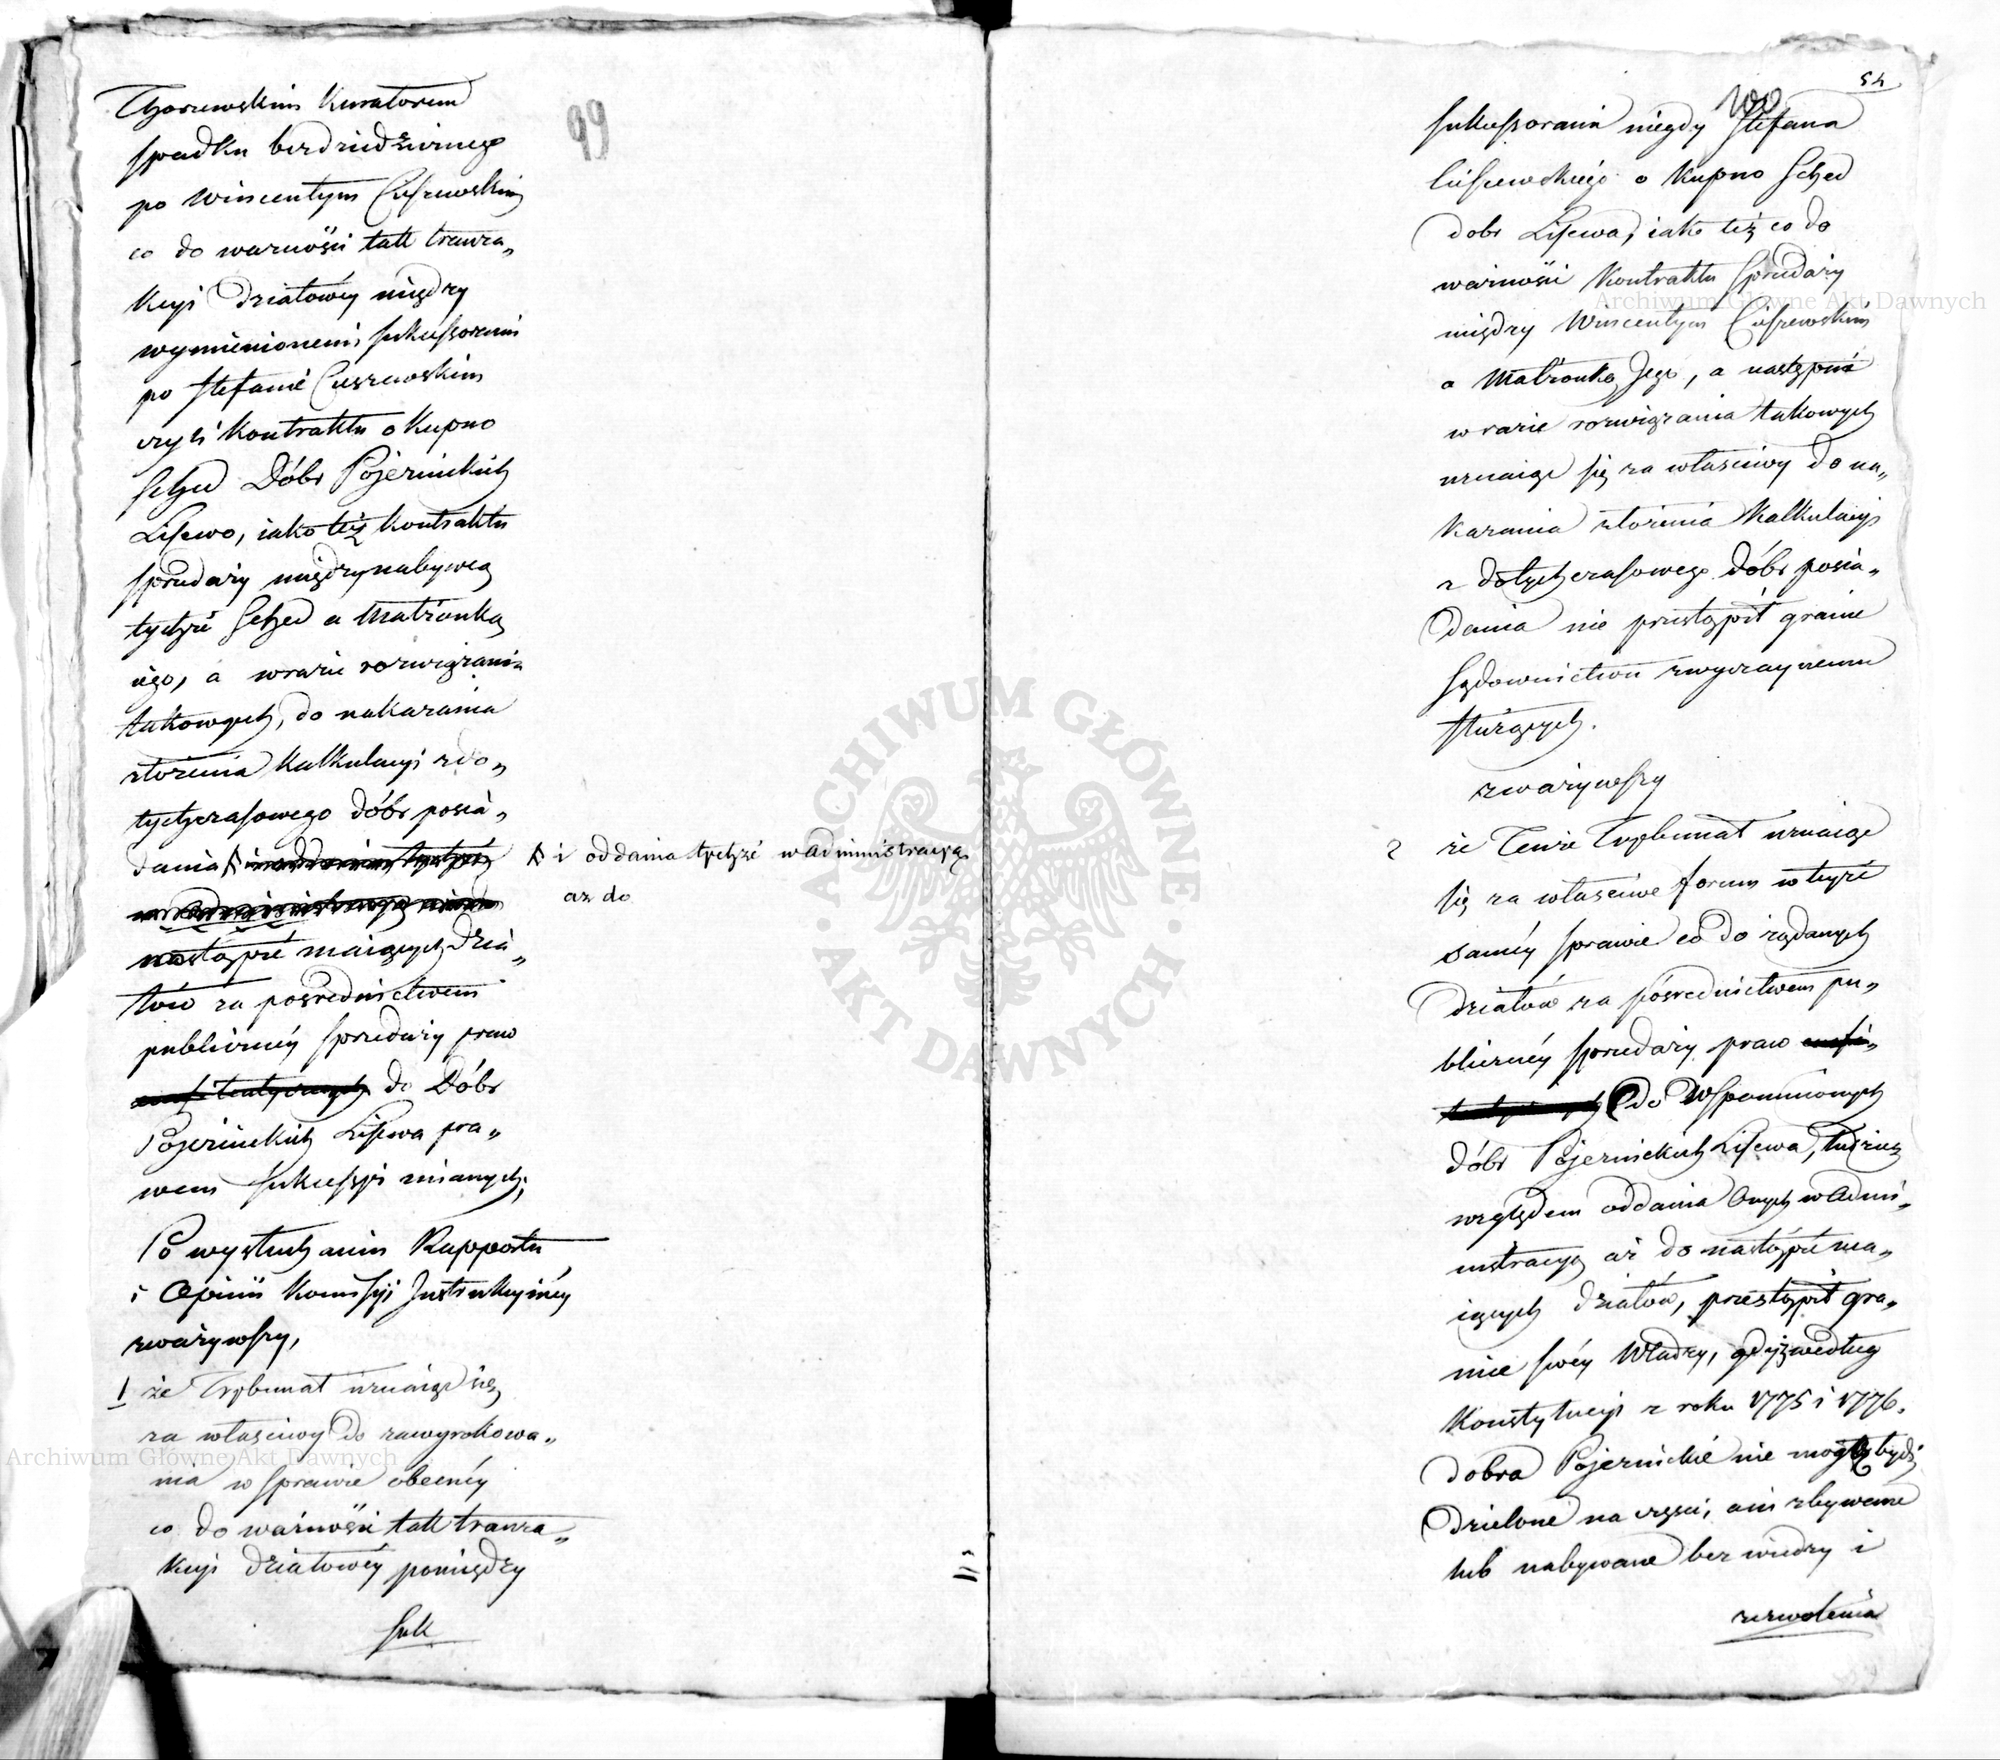 99
Thorzewskim Kuratorem
spadku bezdziedzicznego
po Wincentym Ciszewskim
co do ważności tak tranza„
kcyi Działowéy między
wymienionemi sukcessorami
po Stefanie Ciszewskim
czyli Kontraktu o Kupno
Sched Dóbr Pojezuickich
Lisewo, iako też kontraktu
sprzedaży między nabywcą
tychże Sched a Małżonką
iego, a wrazie rozwiązania
takowych, do nakazania
złożenia Kalkulacyi z do„
tychczasowego dóbr posia„
dania
i oddania tychże w Administracyą
aż do
nastąpić maiących dzia„
łów za pośrednictwem
publicznéy sprzedaży praw
do Dóbr
Pojezuickich Lisewa pra„
wem sukcessyi mianych;
Po wysłuchaniu Rapportu
i Opinii Komissyi Instrukcyinéy
zważywszy,
1 że Trybunał uznaiąc się
za właściwy do zawyrokowa„
nia w sprawie obecnéy
co do ważności tak tranza„
kcyi działowéy pomiędzy
suk
54
100
sukcessorami niegdy Stefana
Ciszewskiego o Kupno Sched
dobr Lisewa, iako też co do
ważności Kontraktu sprzedaży
między Wincentym Ciszewskim
a Małżonką Jego, a następnie
w razie rozwiązania takowych
uznaiąc się za właściwy do na„
kazania złożenia Kalkulacyi
z dotychczasowego Dóbr posia„
dania nie przestąpił granic
Sądownictwu zwyczaynemu
służących.
zważywszy
2 że Tenże Trybunał uznaiąc
się za właściwe forum w teyże
saméy sprawie co do żądanych
Działów za pośrednictwem pu„
blicznéy sprzedaży praw
do Wspomnionych
dóbr Pojezuickich Lisewa, tudzież
względem oddania Onych w Admi„
nistracyą aż do nastąpić ma„
iących działów, przestąpił gra„
nice swéy Władzy, gdyż według
Konstytucyi z roku 1775 i 1776.
dobra Pojezuickie nie mogły bydź
dzielone na części, ani zbywane
lub nabywane bez wiedzy i
zezwolenia
Archiwum Główne Akt Dawnych
Archiwum Główne Akt Dawnych
ARCHIWUM GŁÓWNE
AKT DAWNYCH